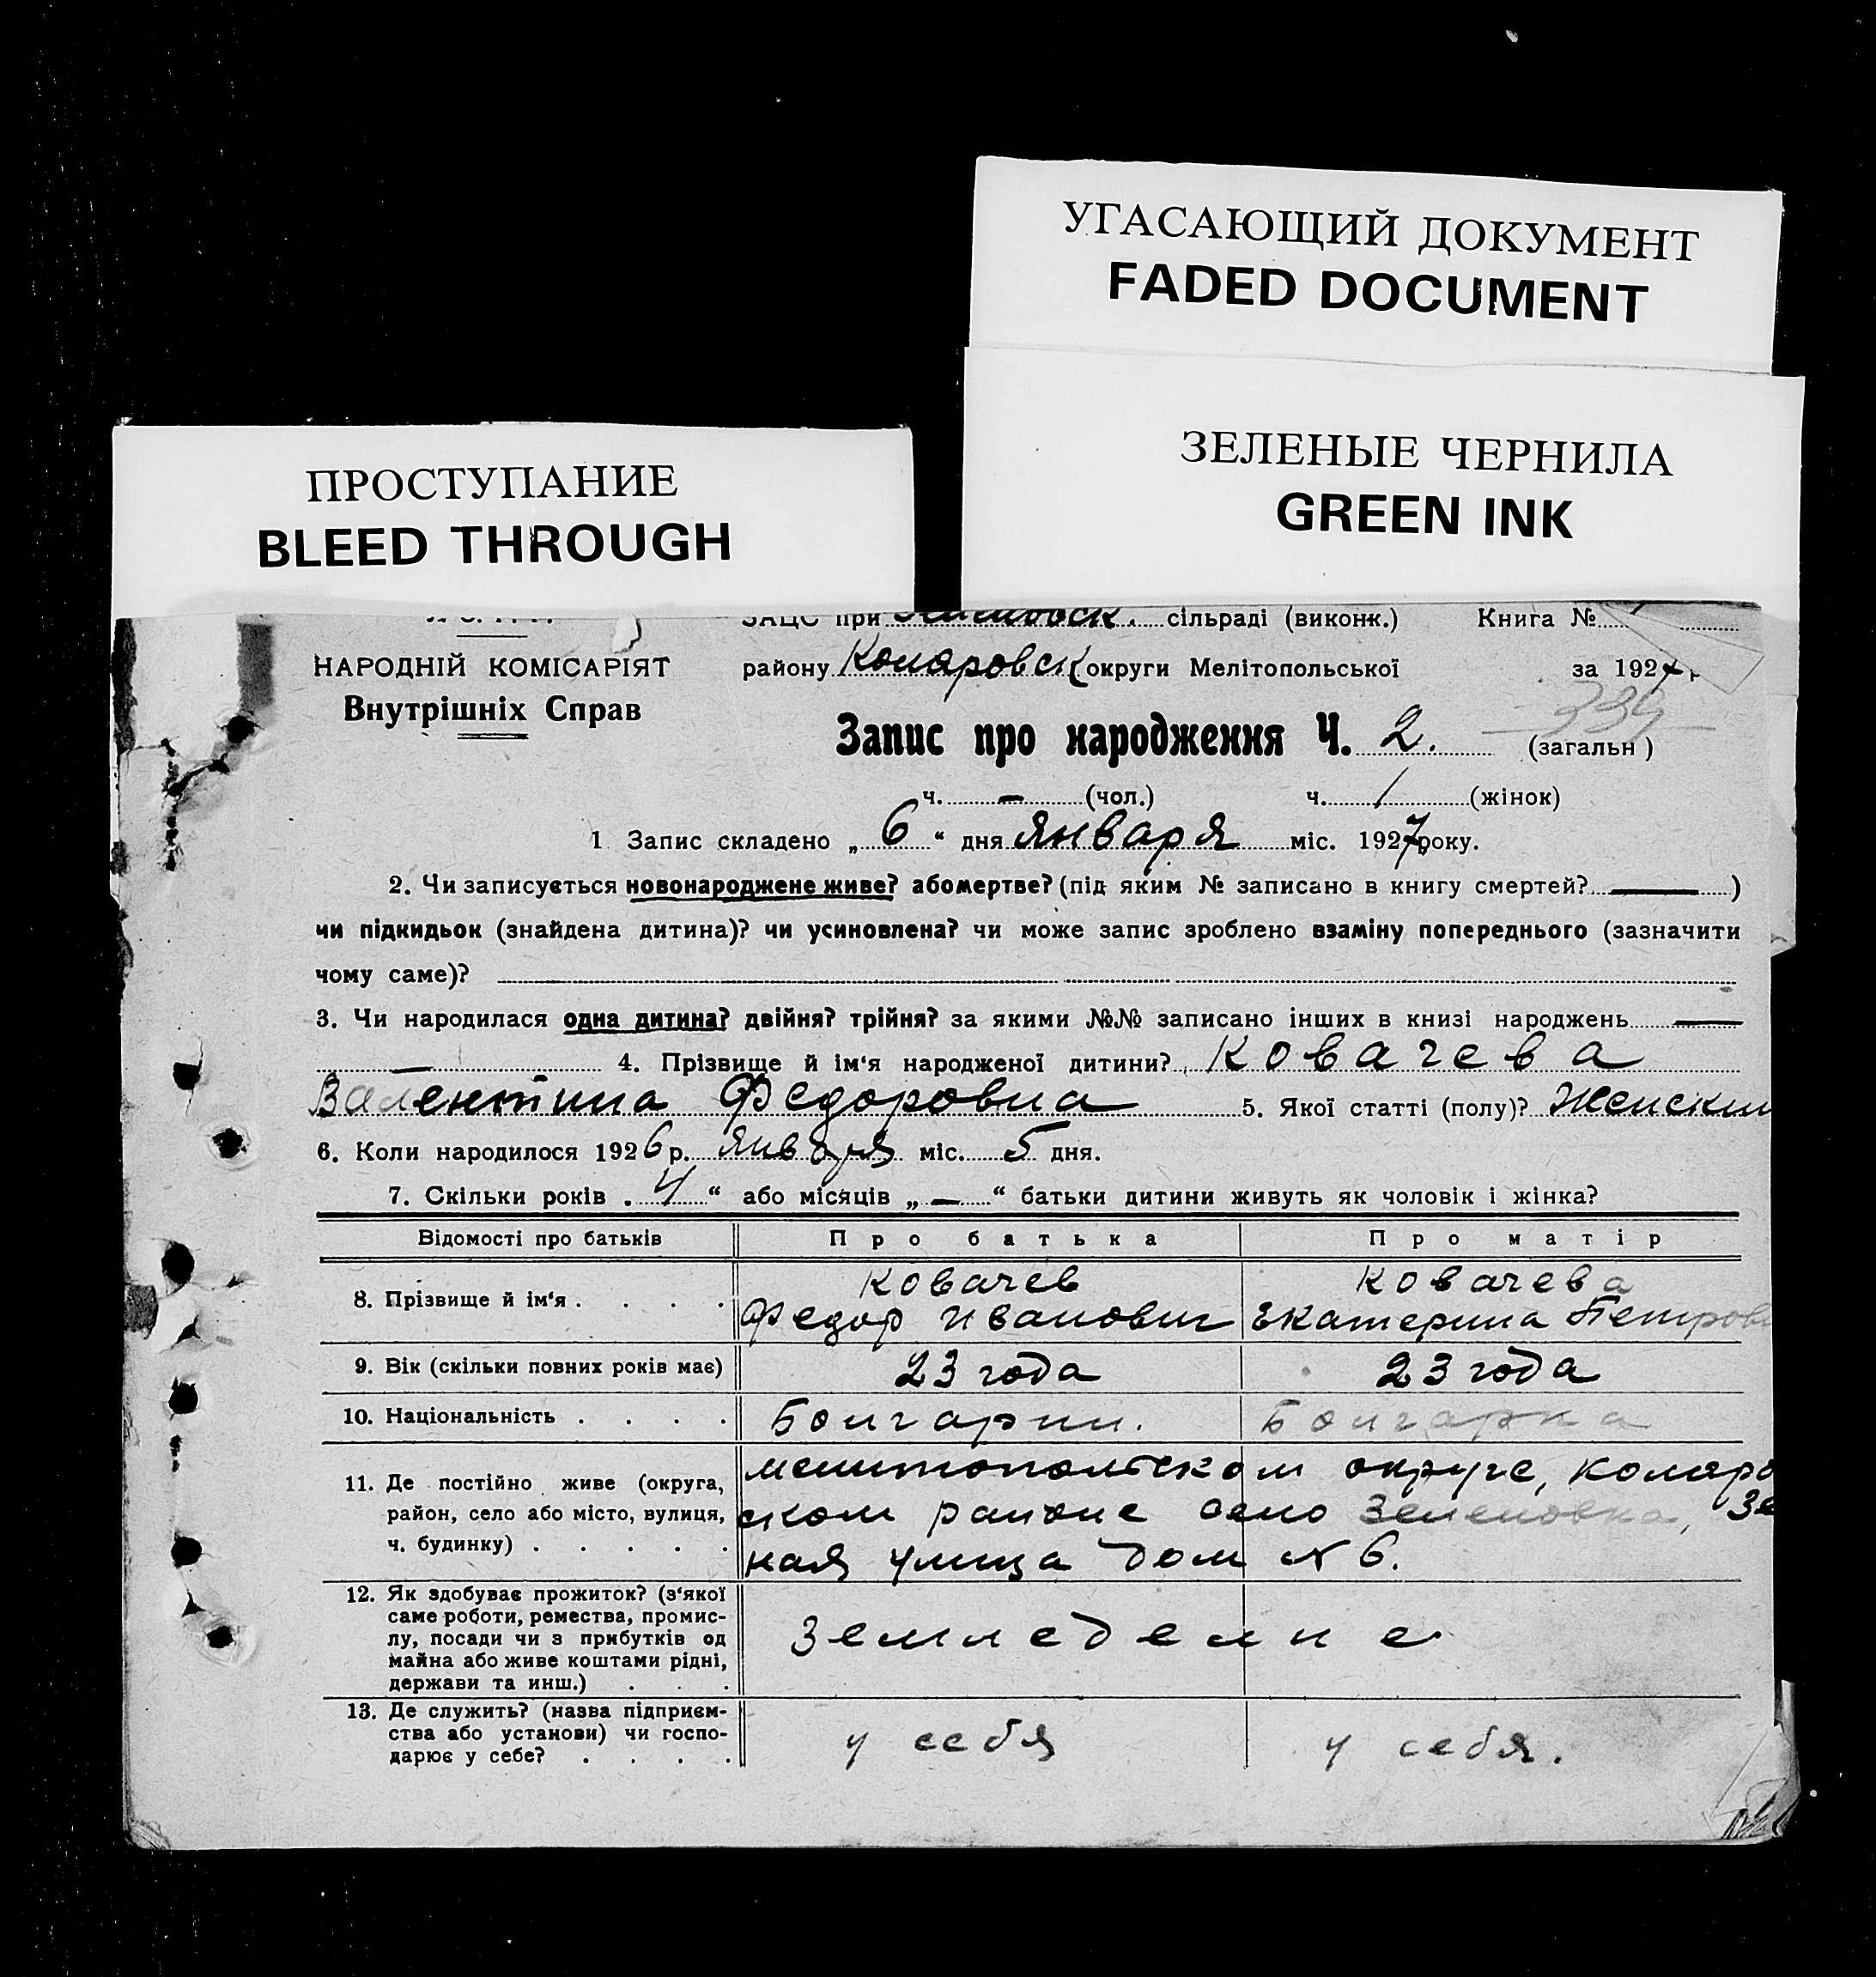 УГАСАЮЩИЙ ДОКУМЕНТ
FADED DOCUMENT
ЗЕЛЕНЫЕ ЧЕРНИЛА
GREEN INK
ПРОСТУПАНИЕ
BLEED THROUGH
ЗАЦС при сільраді (виконж.) Книга №
НАРОДНІЙ КОМІСАРІЯТ
Внутрішніх Справ
району Коларовск округи Мелітопольської за 1927 р
339
Запис про народження Ч. 2. (загальн )
ч. — (чол.) ч. 1 (жінок)
1 Запис складено „ 6 “ дня Января міс. 1927 року.
2. Чи записується новонароджене живе? або мертве? (під яким № записано в книгу смертей? — )
чи підкидьок (знайдена дитина)? чи усиновлена? чи може запис зроблено взаміну попереднього (зазначити
чому саме)?
3. Чи народилася одна дитина? двійня? трійня? за якими №№ записано інших в книзі народжень —
— 4. Прізвище й ім‘я народженої дитини? Ковачева
Валентина Федоровна 5. Якої статті (полу)? Женский
6. Коли народилося 1926 р. января міс. 5 дня.
7. Скільки років „ 4 “ або місяців „ — “ батьки дитини живуть як чоловік і жінка?
Відомості про батьків Про батька Про матір
8. Прізвище й ім‘я . . . . Ковачев Федор Иванович Ковачева Екатерина Петров
9. Вік (скільки повних років має) 23 года 23 года
10. Національність . . . . Болгарин. Болгарка
11. Де постійно живе (округа, Мелитопольском округе, Коларо
район, село або місто, вулиця, ском районе село Зеленовка, Зе
ч. будинку) . . . . . ная улица дом № 6.
12. Як здобуває прожиток? (з‘якої
саме роботи, ремества, промис-
лу, посади чи з прибутків од
майна або живе коштами рідні,
держави та инш.) . . .
Земледелие
13. Де служить? (назва підприєм-
ства або установи) чи госпо-
дарює у себе? . . . .
у себя у себя.